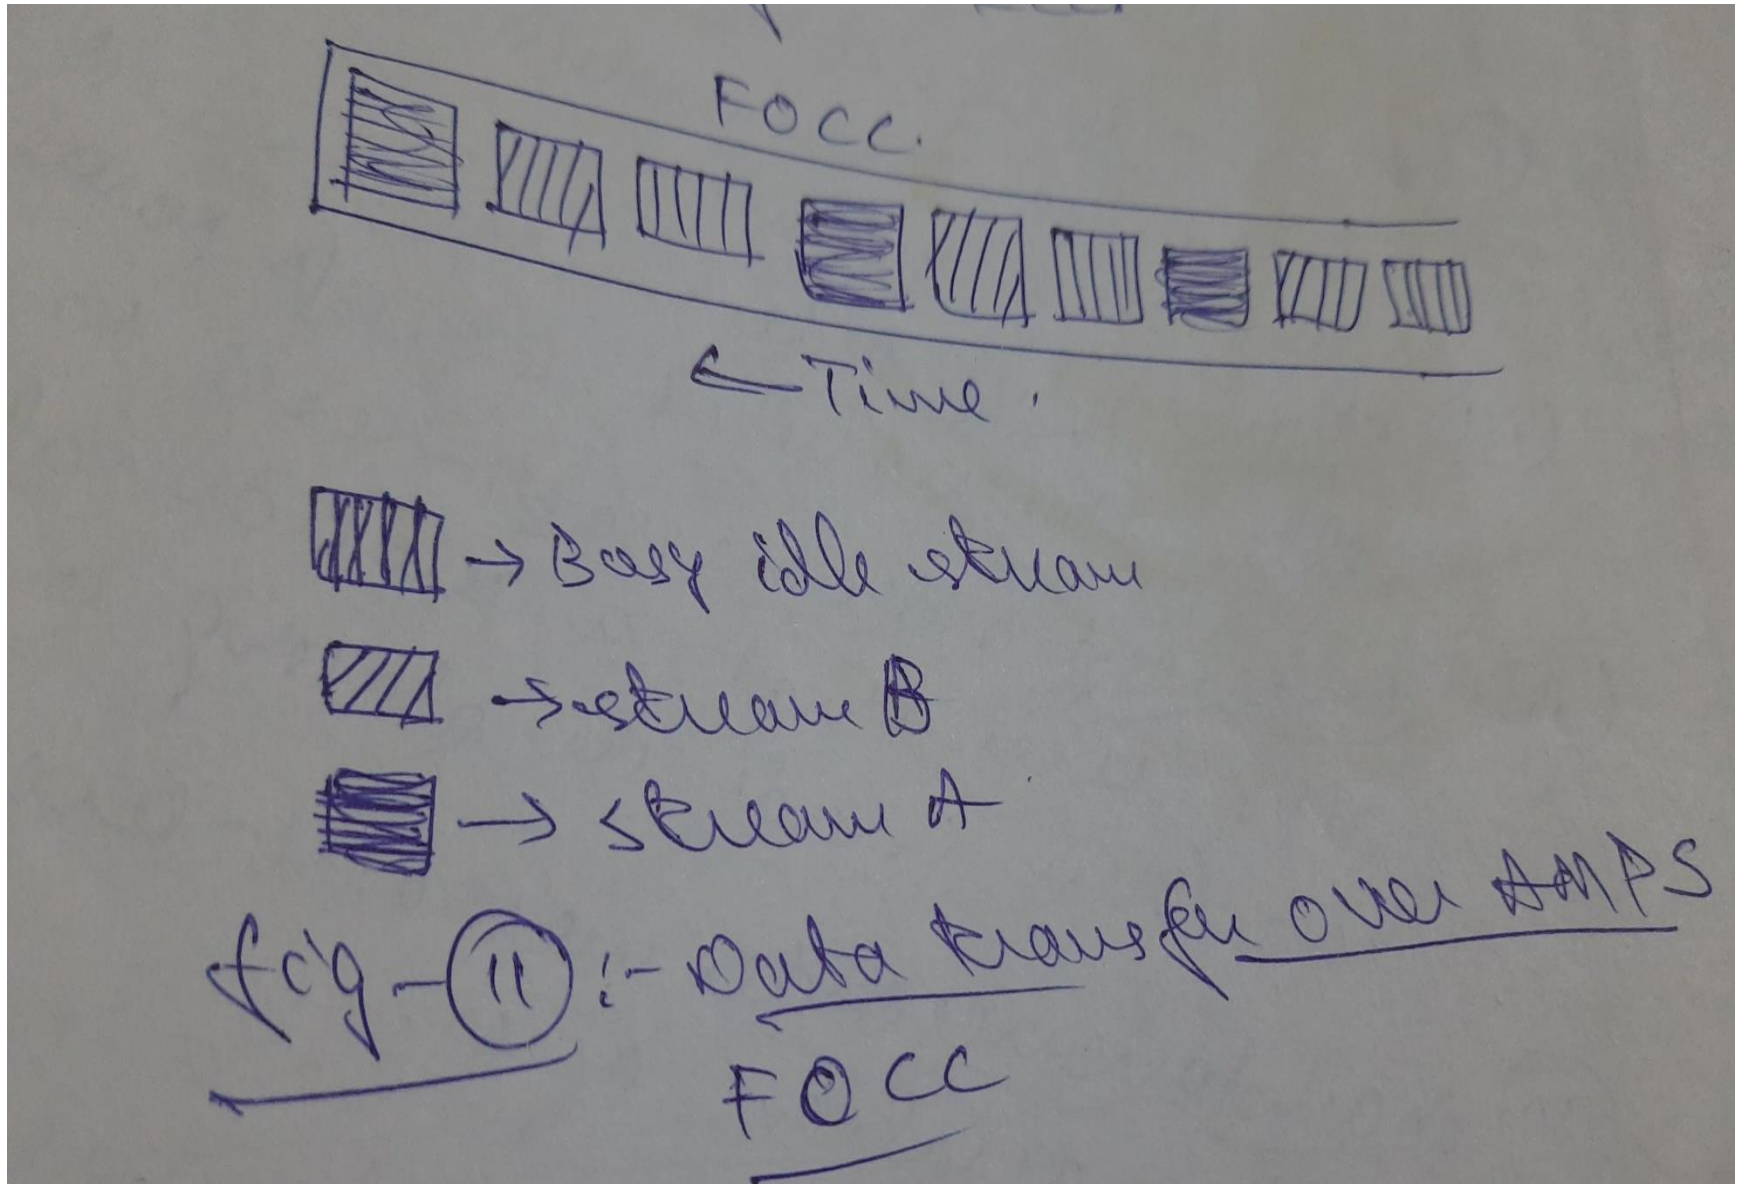 FOCC.
← Time .
→ Busy idle stream
→ stream B
→ stream A
fig - 11 :- Data transfer over AMPS
FOCC